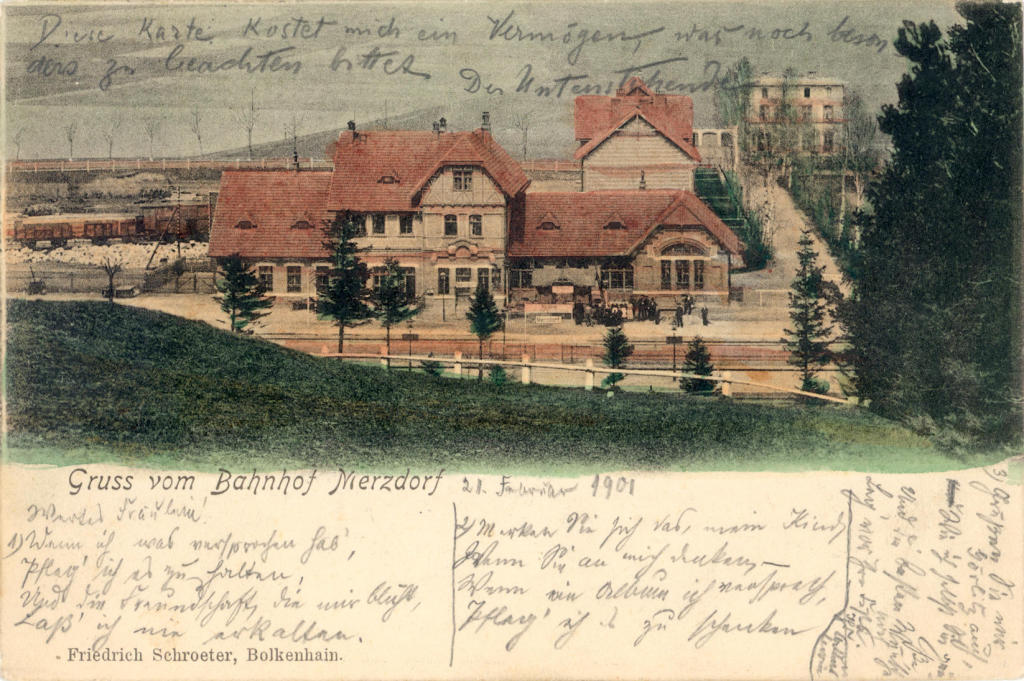 Diese Karte kostet mich ein Vermögen, was noch beson
ders zu beachten bittet
Der Untenstehende
Gruss vom Bahnhof Merzdorf
21. Februar 1901
Wertes Fräulein!
1) Wenn ich was versprochen hab',
Pfleg' ich es zu halten,
Und die Freundschaft, die mir blüht,
Laß' ich nie erkalten.
2) Merken Sie sich das, mein Kind,
Wenn Sie an mich denken –
Wenn ein Album ich versprach,
Pfleg' ich es zu schenken
3) Grüßen Sie mir
Friedrich Schroeter, Bolkenhain.